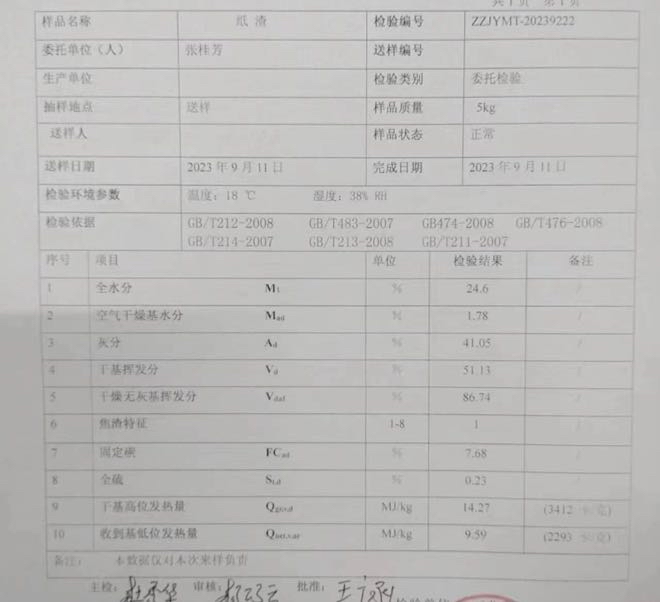 共1页 第1页
样品名称 纸 渣 检验编号 ZZJYMT-20239222
委托单位（人） 张桂芳 送样编号
生产单位 检验类别 委托检验
抽样地点 送样 样品质量 5kg
送样人 样品状态 正常
送样日期 2023 年 9 月 11 日 完成日期 2023 年 9 月 11 日
检验环境参数 温度：18 ℃ 湿度：38% RH
检验依据 GB/T212-2008 GB/T483-2007 GB474-2008 GB/T476-2008
GB/T214-2007 GB/T213-2008 GB/T211-2007
序号 项目 单位 检验结果 备注
1 全水分 Mt % 24.6 /
2 空气干燥基水分 Mad % 1.78 /
3 灰分 Ad % 41.05 /
4 干基挥发分 Vd % 51.13 /
5 干燥无灰基挥发分 Vdaf % 86.74 /
6 焦渣特征 1-8 1 /
7 固定碳 FCad % 7.68 /
8 全硫 St,d % 0.23 /
9 干基高位发热量 Qgr,d MJ/kg 14.27 (3412 克)
10 收到基低位发热量 Qnet,var MJ/kg 9.59 (2293 克)
备注： 本数据仅对本次来样负责
主检： 审核： 批准： 检验单位